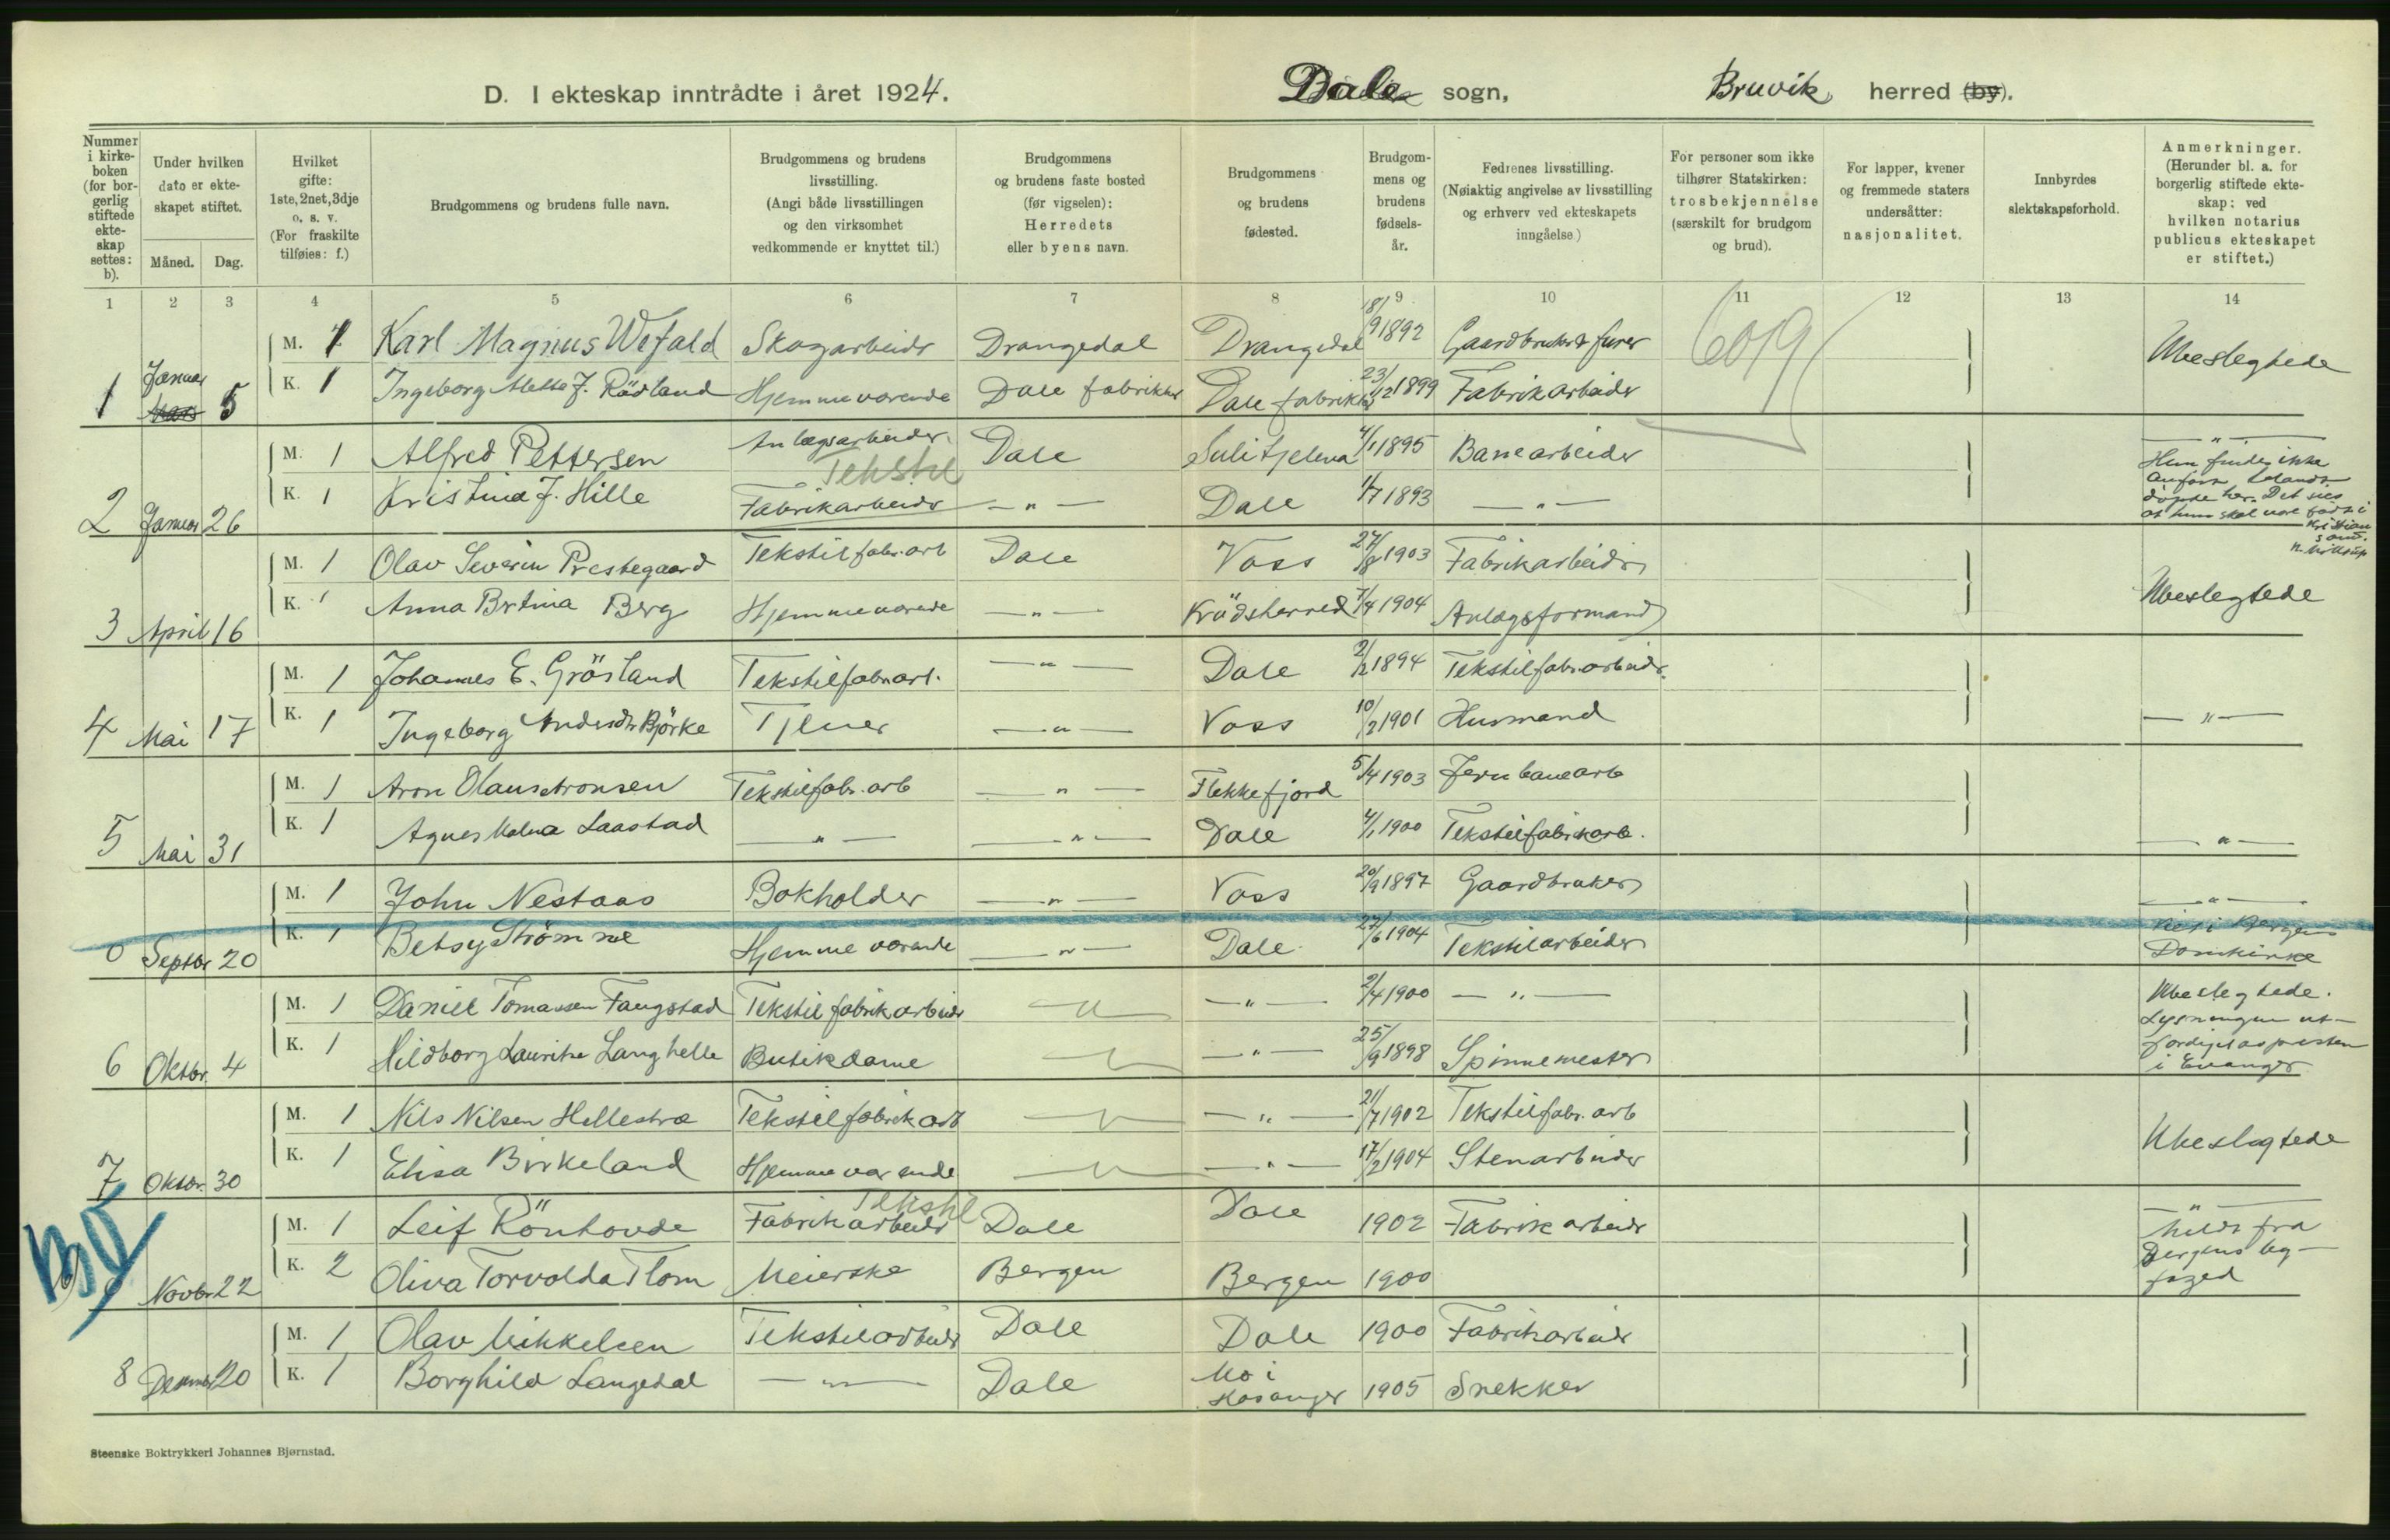 D. I ekteskap inntrådte i året 1924. Dale sogn, Bruvik herred (by).
Nummer i kirke-boken (for bor-gerlig stiftede ekte-skap settes: b).
Under hvilken dato er ekte-skapet stiftet.
Måned. Dag.
Hvilket gifte: 1ste, 2net, 3dje o. s. v. (For fraskilte tilføies: f.)
Brudgommens og brudens fulle navn.
Brudgommens og brudens livsstilling. (Angi både livsstillingen og den virksomhet vedkommende er knyttet til.)
Brudgommens og brudens faste bosted (før vigselen): Herredets eller byens navn.
Brudgommens og brudens fødested.
Brudgom-mens og brudens fødsels-år.
Fedrenes livsstilling. (Nøiaktig angivelse av livsstilling og erhverv ved ekteskapets inngåelse.)
For personer som ikke tilhører Statskirken: trosbekjennelse (særskilt for brudgom og brud).
For lapper, kvener og fremmede staters undersåtter: nasjonalitet.
Innbyrdes slektskapsforhold.
Anmerkninger. (Herunder bl. a. for borgerlig stiftede ekte-skap: ved hvilken notarius publicus ekteskapet er stiftet.)
1 2 3 4 5 6 7 8 9 10 11 12 13 14
M. 1 Karl Magnus Wefald Skogarbeidr Drangedal Drangedal 18/9 1892 Gaardbruker 6019 Ubeslegtede
1 Januar 5 K. 1 Ingeborg J. Rödland Hjemmeværende Dale fabrikker Dale fabrikker 23/12 1899 Fabrikarbeidr
M. 1 Alfred Pettersen Anlægsarbeider Dale Sulitjelma 4/1 1895 Banearbeider — " —
Tekstil
2 Januar 26 K. 1 Kristina J. Hille Fabrikarbeidr — " — Dale 1/7 1893 — " — Hun findes ikke
döpte her. Det sies
at hun skal være födt i
Kristian
sand.
M. 1 Olav Severin Prestegaard Tekstilfabr.arb Dale Voss 27/8 1903 Fabrikarbeidr
3 April 16 K. 1 Anna Bertina Berg Hjemmeværende — " — Krödsherred 7/4 1904 Anlægsformand Ubeslegtede
M. 1 Johannes E. Gröstand Tekstilfabr.arb. — " — Dale 2/12 1894 Tekstilfabr.arbeidr.
4 Mai 17 K. 1 Ingeborg Andersdr Björke Tjener — " — Voss 10/2 1901 Husmand — " —
M. 1 Aron Olaus Aronsen Tekstilfabr. arb — " — Flekkefjord 5/4 1903 Jernbanearb
5 Mai 31 K. 1 Agnes Laastad — " — — " — Dale 4/1 1900 Tekstilfabrikarb. — " —
M. 1 John Nestaas Bokholder — " — Voss 20/9 1897 Gaardbruker — " —
0 Septbr 20 K. 1 Betsy Strömme Hjemmeværende — " — Dale 27/6 1904 Tekstilarbeider Viet i Bergens
Domkirke
M. 1 Daniel Tomassen Fangstad Tekstilfabrikarbeidr — " — — " — 2/4 1900 — " — Ubeslegtede.
6 Oktbr. 4 K. 1 Hildborg Lauritze Langhelle Butikdame — " — — " — 25/9 1898 Spinnemester Lysningen ut-
færdiget av presten
i Evanger
M. 1 Nils Nilsen Hellestræ Tekstilfabrik arb — " — — " — 21/7 1902 Tekstilfabr. arb
7 Oktbr. 30 K. 1 Elisa Birkeland Hjemmeværende — " — — " — 17/2 1904 Stenarbeider Ubeslegtede
M. 1 Leif Rönhovde Fabrikarbeidr Dale Dale 1902 Fabrikarbeidr — " —
Tekstil
Novbr 22 K. 2 Oliva Torvolda Flom Meierske Bergen Bergen 1900 fra
Bergens by-
foged
M. 1 Olav Mikkelsen Tekstilarbeidr Dale Dale 1900 Fabrikarbeidr
8 Desember 20 K. 1 Borghild Langedal — " — Dale Mo i
Hosanger 1905 Snekker
Steenske Boktrykkeri Johannes Bjørnstad.